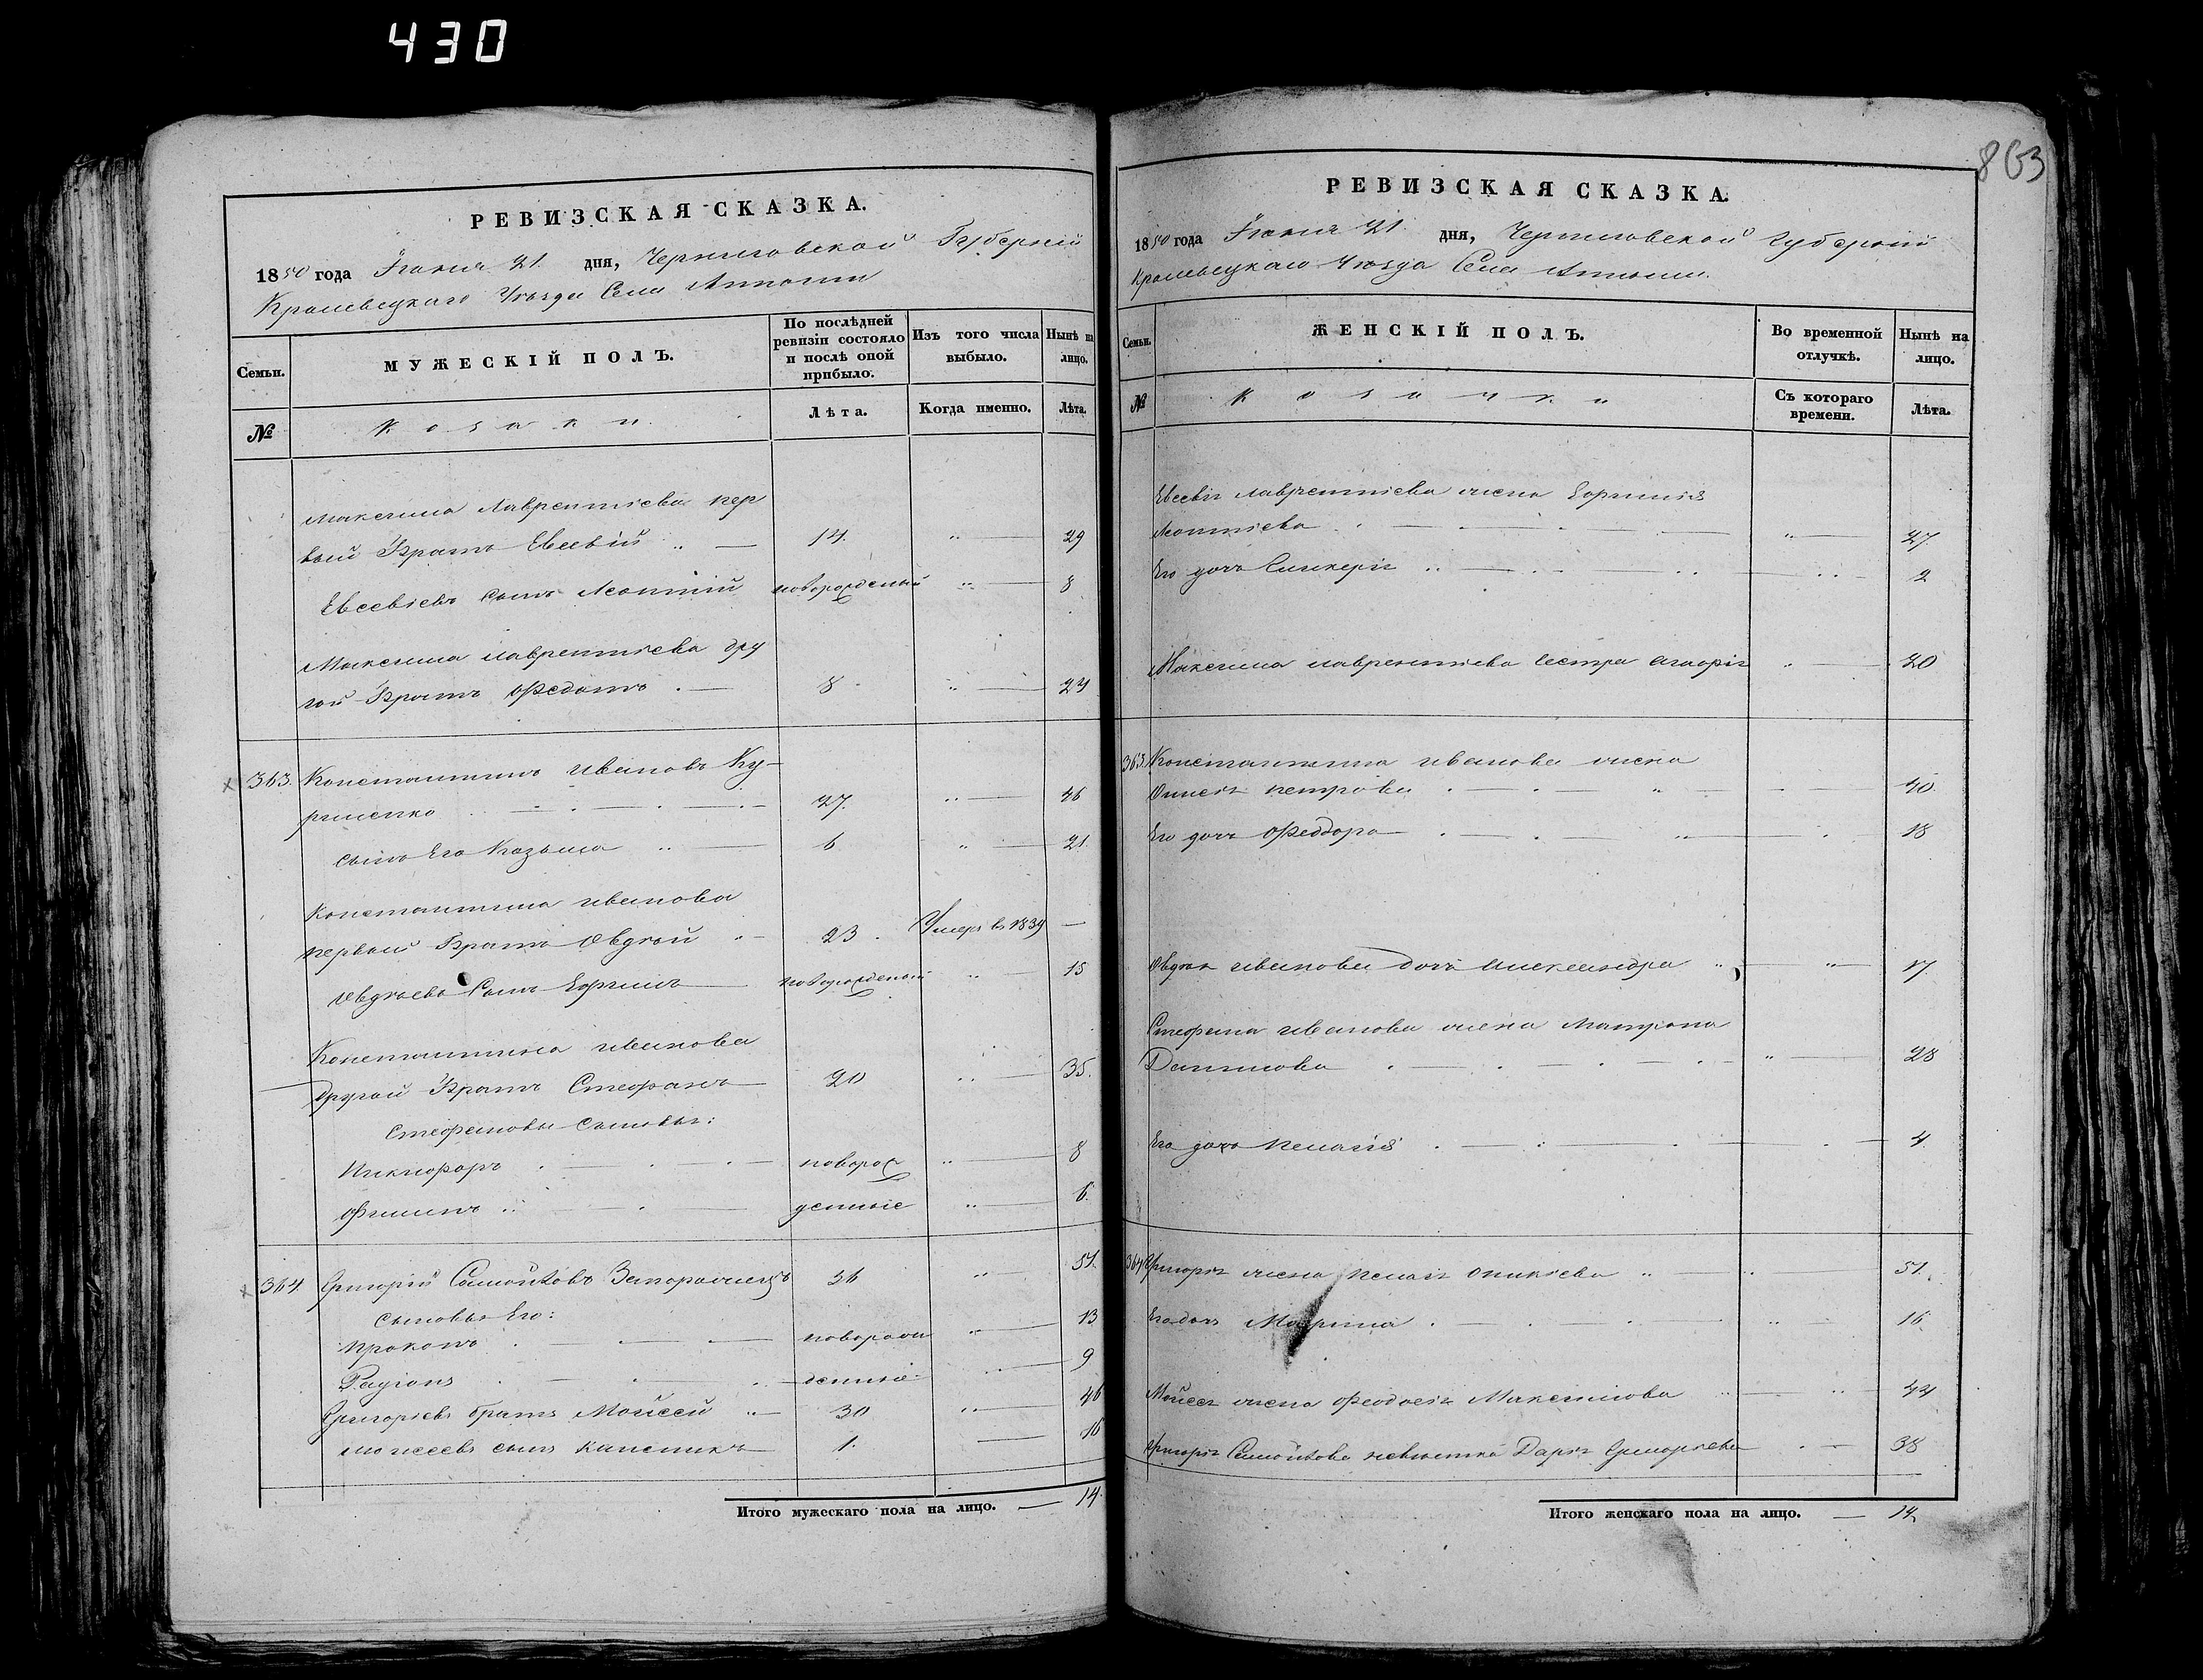 430
863
РЕВИЗСКАЯ СКАЗКА.
1850 года Іюня 21. дня, Черниговской Губерніи
Кролевецкаго Уезда Села
Семьи.
МУЖЕСКІЙ ПОЛЪ.
По послѣдней ревизіи состояло и послѣ оной прибыло.
Изъ того числа выбыло.
Нынѣ на лицо.
№
Козаки.
Лѣта.
Когда именно.
Лѣта.
Максима Лаврентіева пер
вый Братъ Евсевій 14. 29
Евсевіевъ сынъ Леонтій новорожденый 8
Максима Лаврентіева дру
гой Братъ Федотъ 8 23
363. Константинъ Ивановъ Ку-
27. 46
сынъ Его Козьма 6 21
Константина Иванова
первый Братъ Овдѣй 23. Умеръ въ 1839 —
Овдѣевъ Сынъ Ефимъ новорожденый 15
Константина Иванова
Другой Братъ Стефанъ 20 35.
Стефановы Сыновья:
Никифоръ новорож 8
Филипъ денные 6.
364. Григорій Самойловъ Запорожецъ 36 51.
Сыновья Его:
Прокопъ новорож 13
Радіонъ денные 9
Григоріевъ братъ Мойсей 30 46
Моисеевъ сынъ 1. 16
Итого мужескаго пола на лицо. — 14.
РЕВИЗСКАЯ СКАЗКА.
1850 года Іюня 21. дня, Черниговской Губерніи
Кролевецкаго Уезда Села
Семьи.
ЖЕНСКІЙ ПОЛЪ.
Во временной отлучкѣ.
Нынѣ на лицо.
№
Козачки
Съ котораго времени.
Лѣта.
Евсевія Лаврентіева жена Ефимія
Леонтіева 27.
Его дочь Гликерія 2
Максима Лаврентіева Сестра 20
363. Константина Иванова жена
Петрова 40
Его дочь Феодора 18
Овдѣя Иванова дочь Александра 17
Стефана Иванова жена Матрона
Данилова 28
Его дочь Пелагія 4
364 Григорія жена Пелагія 51.
Его дочь Марина 16
Мойсея жена Феодосія Максимова 44
Григорія Самойлова невѣстка Дарія Григоріева 38
Итого женскаго пола на лицо. — 14.